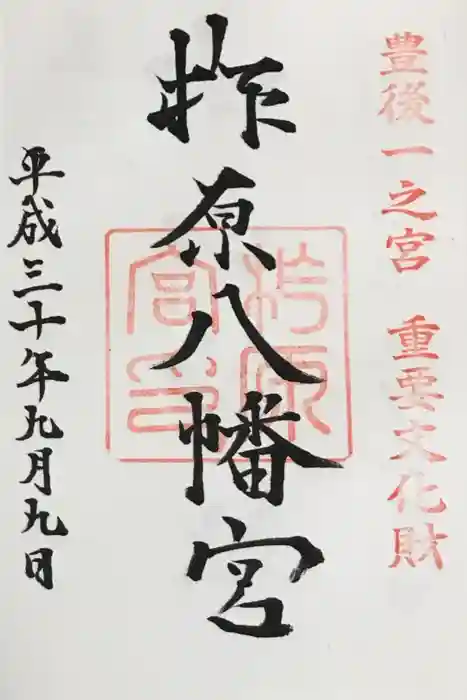 豊後一之宮 重要文化財
柞原八幡宮
平成三十年九月九日
柞原
宮印